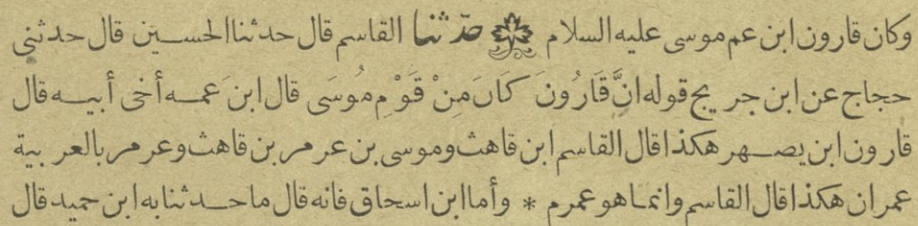 وكان قارون ابن عم موسى عليه السلام ❁ حدّثنا القاسم قال حدثنا الحسين قال حدثنى
حجاج عن ابن جريج قوله انَّ قَارُونَ كَانَ مِنْ قَوْمِ مُوسَى قال ابن عمه أخى أبيه قال
قارون ابن يصهر هكذا قال القاسم ابن قاهث وموسى بن عرمر بن قاهث وعرمر بالعربية
عمران هكذا قال القاسم وانما هو عمرم * وأما ابن اسحاق فانه قال ما حدثنا به ابن حميد قال